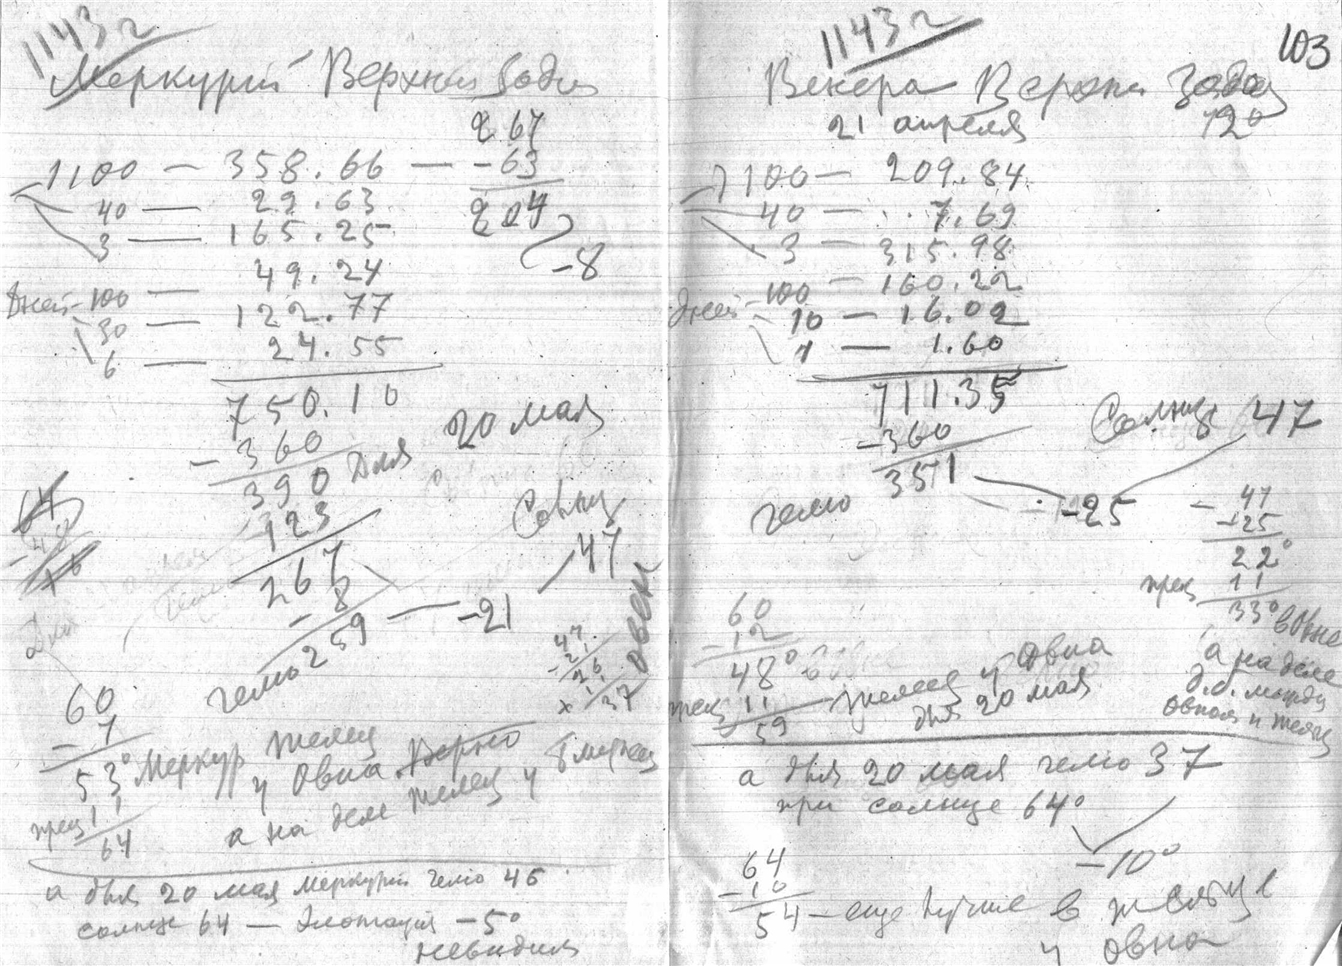 1143 г
Меркурий Верхний Зодиак
267
1100 — 358.66 — -63
40 — 29.63 204
3 — 165.25 -8
49.24
Дней - 100 —
30 — 122.77
6 — 24.55
750.10
- 360
390 Для 20 мая
123
267
- 8
гелио 259 — -21
Солнце
47
Овен
47
- 21
26
× 11
37
Для
60
- 7
53° Меркур Телец
прец 11 у Овна Верно Близнец
64 а на деле Телец у
а для 20 мая меркурий гелио 46
солнце 64 — Элонгация -5°
невидим
103
1143 г
Венера Верхн Зодиа
21 апреля 120
1100 — 209.84
40 — 7.69
3 — 315.98
Дней - 100 — 160.22
10 — 16.02
1 — 1.60
711.35
- 360
гелио 351
Солнце 47
-25
- 47
- 25
22°
прец 11
33° в Овне
а на деле
д.б. между
овном и телец
60
- 12
48°
прец 11 — телец у Овна
59 для 20 мая
а для 20 мая гелио 37
при солнце 64°
-10°
64
- 10
54 — еще лучше в тельце
у овна